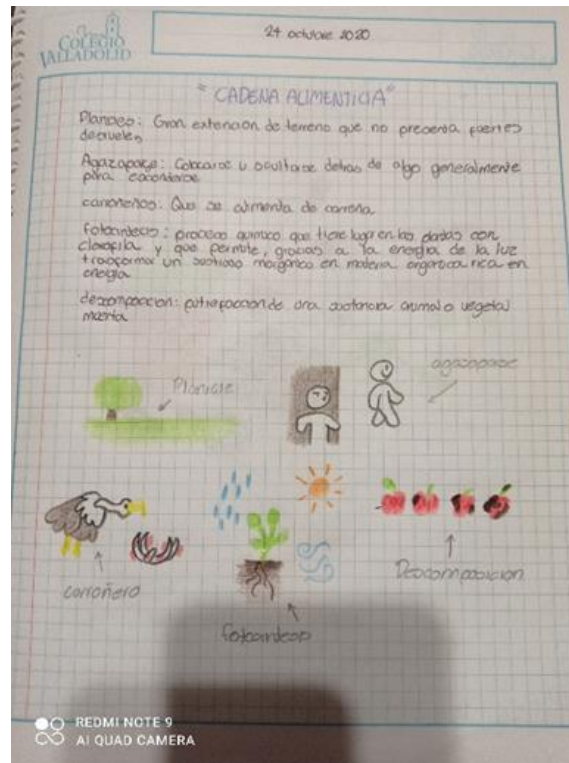 COLEGIO
VALLADOLID
24 octubre 2020
"CADENA ALIMENTICIA"
Planicie: Gran extencion de terreno que no presenta fuertes
desniveles
Agazaparse: Colocarse u ocultarse detras de algo generalmente
para esconderse
carroñeros: Que se alimenta de carroña
fotosintesis: proceso quimico que tiene lugar en las plantas con
clorofila y que permite, gracias a la energia de la luz
transformar un sustrato inorganico en materia organica rica en
energia
descomposicion: putrefaccion de una sustancia animal o vegetal
muerta
Planicie
agazaparse
carroñero
fotosintesis
Descomposicion
REDMI NOTE 9
AI QUAD CAMERA